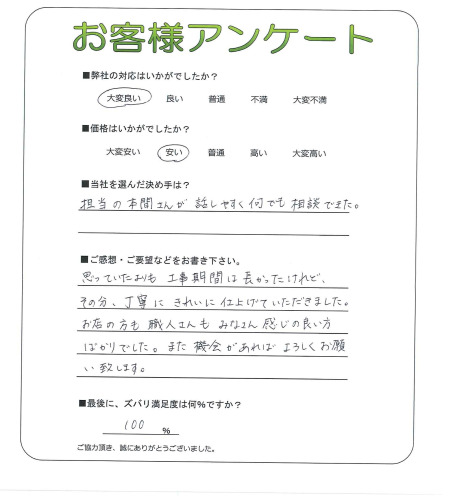 お客様アンケート
■弊社の対応はいかがでしたか？
大変良い 良い 普通 不満 大変不満
■価格はいかがでしたか？
大変安い 安い 普通 高い 大変高い
■当社を選んだ決め手は？
担当の本間さんが話しやすく何でも相談できた。
■ご感想・ご要望などをお書き下さい。
思っていたよりも工事期間は長かったけれど、
その分、丁寧にきれいに仕上げていただきました。
お店の方も職人さんもみなさん感じの良い方
ばかりでした。また機会があればよろしくお願
い致します。
■最後に、ズバリ満足度は何％ですか？
100 ％
ご協力頂き、誠にありがとうございました。